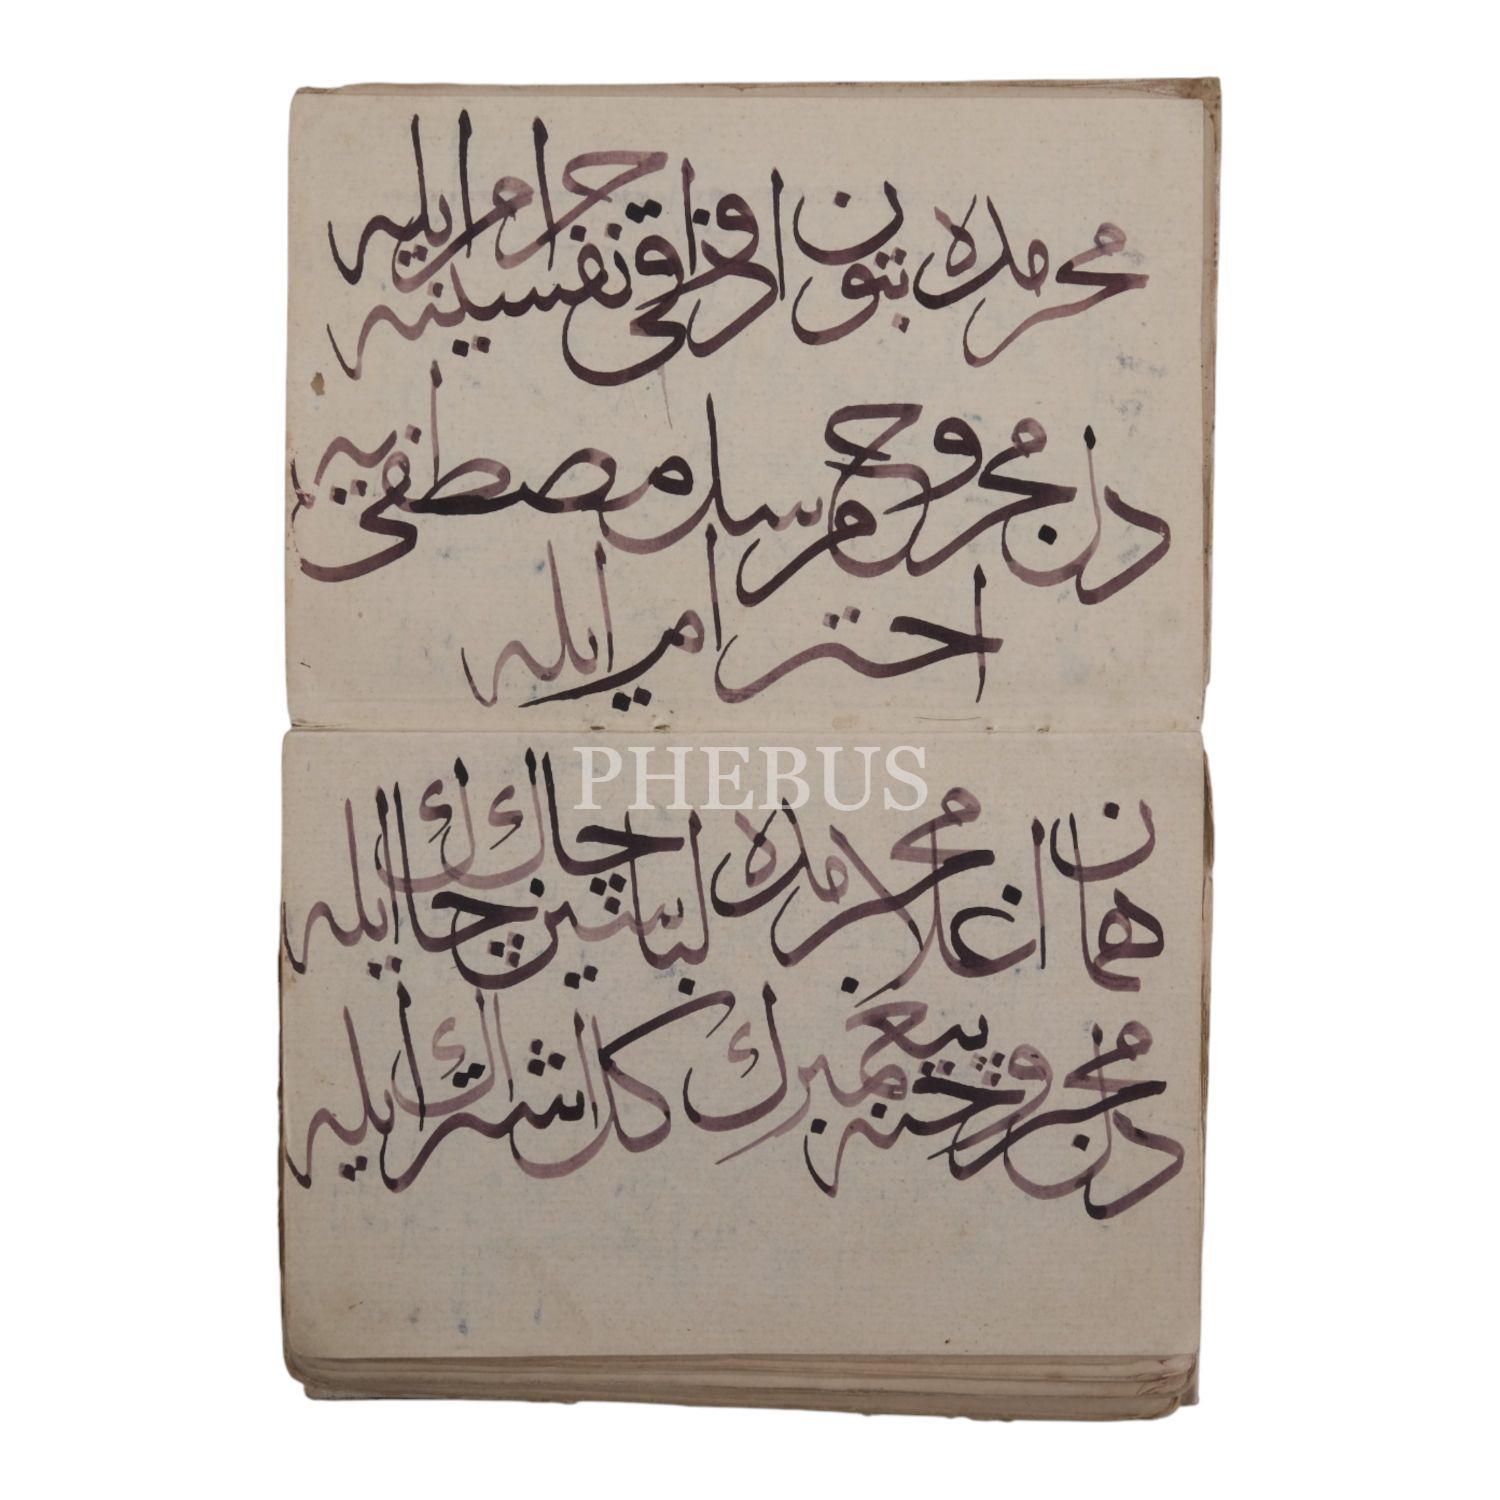 محرمده بتون اذواقی نفسینه حرام ایله
دل مجروحم رسل مصطفی یه
احترام ایله
PHEBUS
همان اغلا محرمده لباسین چاك چاك ایله
دل مجروحنه پیغمبرك كل اشتراك ایله